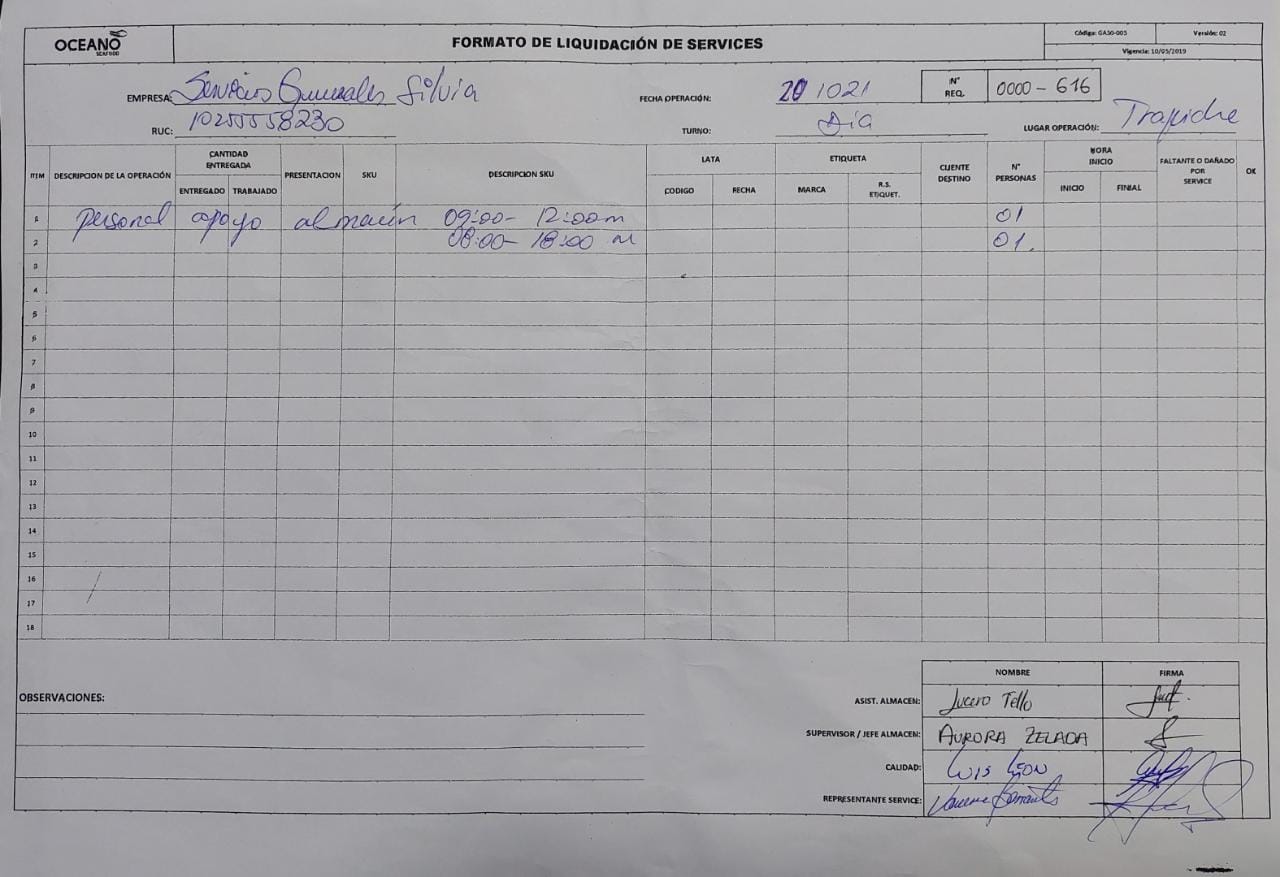 OCEANO
SEAFOOD
FORMATO DE LIQUIDACIÓN DE SERVICES
Código: GA30-005
Versión: 02
Vigencia: 10/05/2019
EMPRESA: Servicios Generales Silvia
FECHA OPERACIÓN: 20 1021
N° REQ. 0000 - 616
RUC: 10255558230
TURNO: Dia
LUGAR OPERACIÓN: Trapiche
ITEM
DESCRIPCION DE LA OPERACIÓN
CANTIDAD ENTREGADA
ENTREGADO
TRABAJADO
PRESENTACION
SKU
DESCRIPCION SKU
LATA
CODIGO
FECHA
ETIQUETA
MARCA
R.S. ETIQUET.
CLIENTE DESTINO
N° PERSONAS
HORA INICIO
INICIO
FINIAL
FALTANTE O DAÑADO POR SERVICE
OK
1 personal apoyo almacén 09:00- 12:00m 01
2 08:00- 18:00 m 01.
3
4
5
6
7
8
9
10
11
12
13
14
15
16
17
18
OBSERVACIONES:
NOMBRE
FIRMA
ASIST. ALMACEN: Lucero Tello
SUPERVISOR / JEFE ALMACEN: AURORA ZELADA
CALIDAD: LUIS LEON
REPRESENTANTE SERVICE: